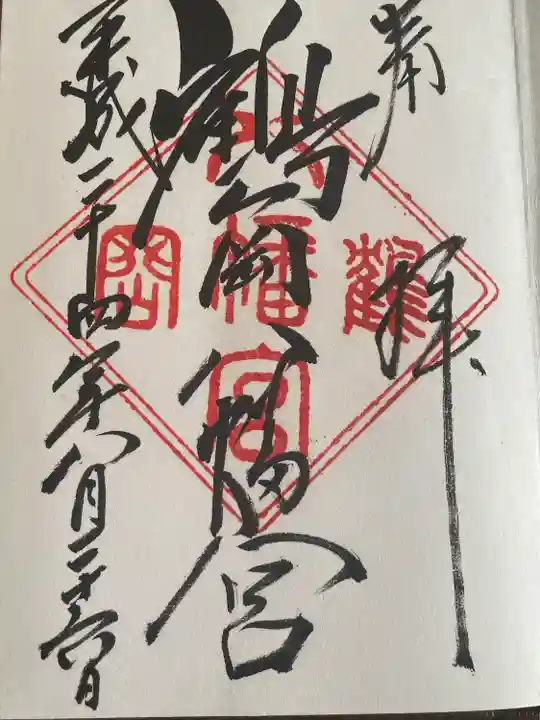 奉拝
鶴岡八幡宮
平成二十四年八月二十六日
鶴
八幡宮
岡